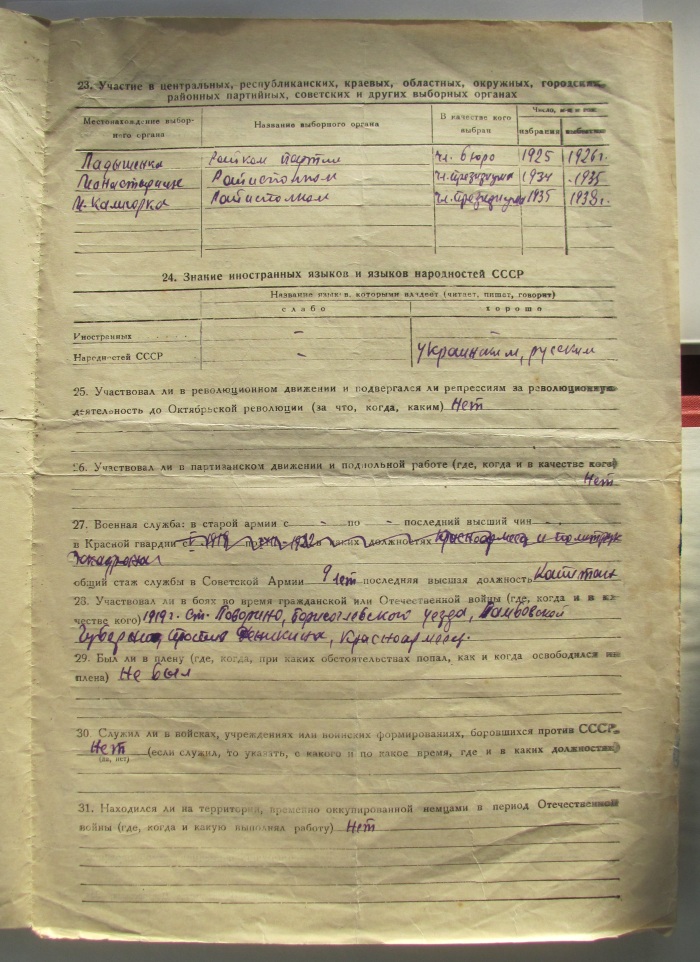 23. Участие в центральных, республиканских, краевых, областных, окружных, городских,
районных партийных, советских и других выборных органах
Местонахождение выбор-
ного органа
Название выборного органа
В качестве кого
выбран
избрания
выбытия
Ладыженка Райком партии чл. бюро 1925 1926 г.
Монастырище Райисполком чл. президиума 1934 1935
Райисполком чл. президиума 1935 1938 г.
24. Знание иностранных языков и языков народностей СССР
Название языков, которыми владеет (читает, пишет, говорит)
слабо хорошо
Иностранных – –
Народностей СССР – украинским, русским
25. Участвовал ли в революционном движении и подвергался ли репрессиям за революционную
деятельность до Октябрьской революции (за что, когда, каким) Нет
26. Участвовал ли в партизанском движении и подпольной работе (где, когда и в качестве кого)
Нет
27. Военная служба: в старой армии с - по - последний высший чин
в Красной гвардии с по 1922 в каких должностях Красноармеец и политрук
эскадрона
общий стаж службы в Советской Армии 9 лет последняя высшая должность Капитан
28. Участвовал ли в боях во время гражданской или Отечественной войны (где, когда и в ка-
честве кого) 1919 г. ст. Поворино, Борисоглебского уезда, Тамбовской
губернии против Деникина, Красноармеец.
29. Был ли в плену (где, когда, при каких обстоятельствах попал, как и когда освободился из
плена) Не был
30. Служил ли в войсках, учреждениях или воинских формированиях, боровшихся против СССР
Нет (если служил, то указать, с какого и по какое время, где и в каких должностях)
(да, нет)
31. Находился ли на территории, временно оккупированной немцами в период Отечественной
войны (где, когда и какую выполнял работу) Нет